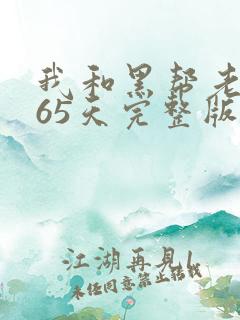 我和黑帮老
65天完整版
江湖再见
未经同意禁止转载